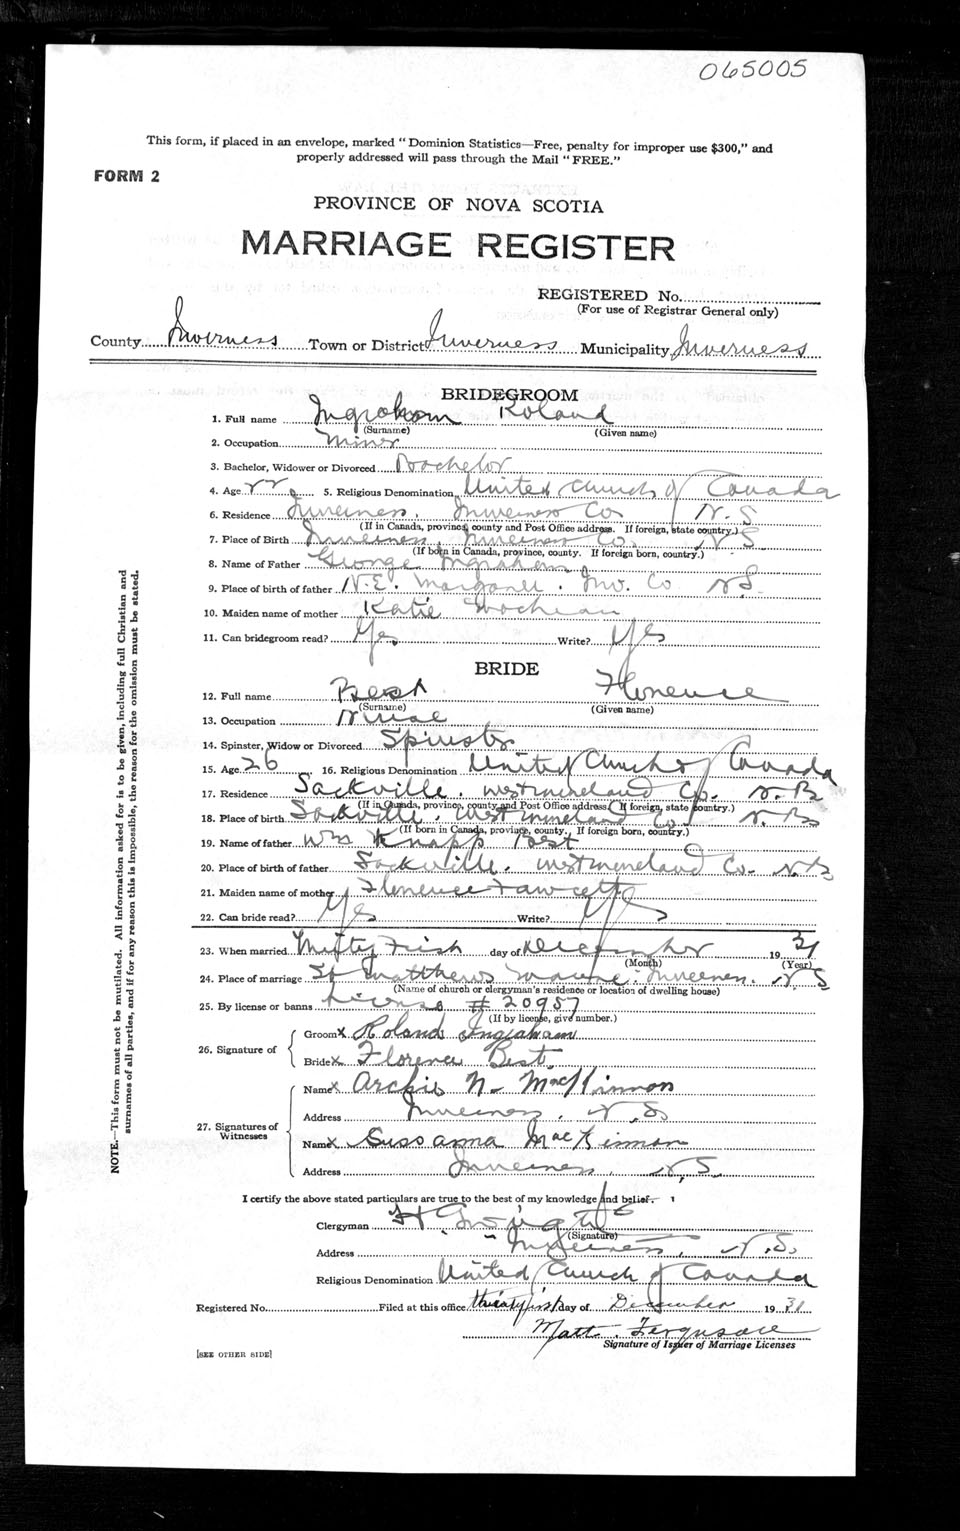 065005
This form, if placed in an envelope, marked "Dominion Statistics—Free, penalty for improper use $300," and
properly addressed will pass through the Mail "FREE."
FORM 2
PROVINCE OF NOVA SCOTIA
MARRIAGE REGISTER
REGISTERED No.
(For use of Registrar General only)
County Inverness Town or District Inverness Municipality Inverness
BRIDEGROOM
1. Full name Ingraham Roland
(Surname) (Given name)
2. Occupation Miner
3. Bachelor, Widower or Divorced Bachelor
4. Age 22 5. Religious Denomination United Church of Canada
6. Residence Inverness. Inverness Co N.S
(If in Canada, province, county and Post Office address. If foreign, state country.)
7. Place of Birth Inverness. Inverness Co. N S.
(If born in Canada, province, county. If foreign born, country.)
8. Name of Father George Ingraham
9. Place of birth of father N.E. Margaree. Inv. Co N S.
10. Maiden name of mother Katie
11. Can bridegroom read? Yes Write? Yes
BRIDE
12. Full name Best Florence
(Surname) (Given name)
13. Occupation Nurse
14. Spinster, Widow or Divorced Spinster
15. Age 26 16. Religious Denomination United Church of Canada
17. Residence Sackville. Westmoreland Co. N.B
(If in Canada, province, county and Post Office address. If foreign, state country.)
18. Place of birth Sackville. Westmoreland Co. N.B
(If born in Canada, province, county. If foreign born, country.)
19. Name of father Wm Knapp Best
20. Place of birth of father Sackville. Westmoreland Co. N.B
21. Maiden name of mother Florence Fawcett
22. Can bride read? Yes Write? Yes
23. When married day of December 1931
(Month) (Year)
24. Place of marriage St Matthews Manse. Inverness. N S
(Name of church or clergyman's residence or location of dwelling house)
25. By license or banns License # 20957
(If by license, give number.)
26. Signature of
Groom x Roland Ingraham
Bride x Florence Best.
27. Signatures of
Witnesses
Name x Archie N. MacKinnon
Address Inverness, N.S.
Name x Sussanna MacKinnon
Address Inverness, N,S
I certify the above stated particulars are true to the best of my knowledge and belief.
Clergyman
(Signature)
Address Inverness, N.S.
Religious Denomination United Church of Canada
Registered No. Filed at this office thirty first day of December 1931
Matt. Ferguson
Signature of Issuer of Marriage Licenses
[SEE OTHER SIDE]
NOTE.—This form must not be mutilated. All information asked for is to be given, including full Christian and
surnames of all parties, and if for any reason this is impossible, the reason for the omission must be stated.